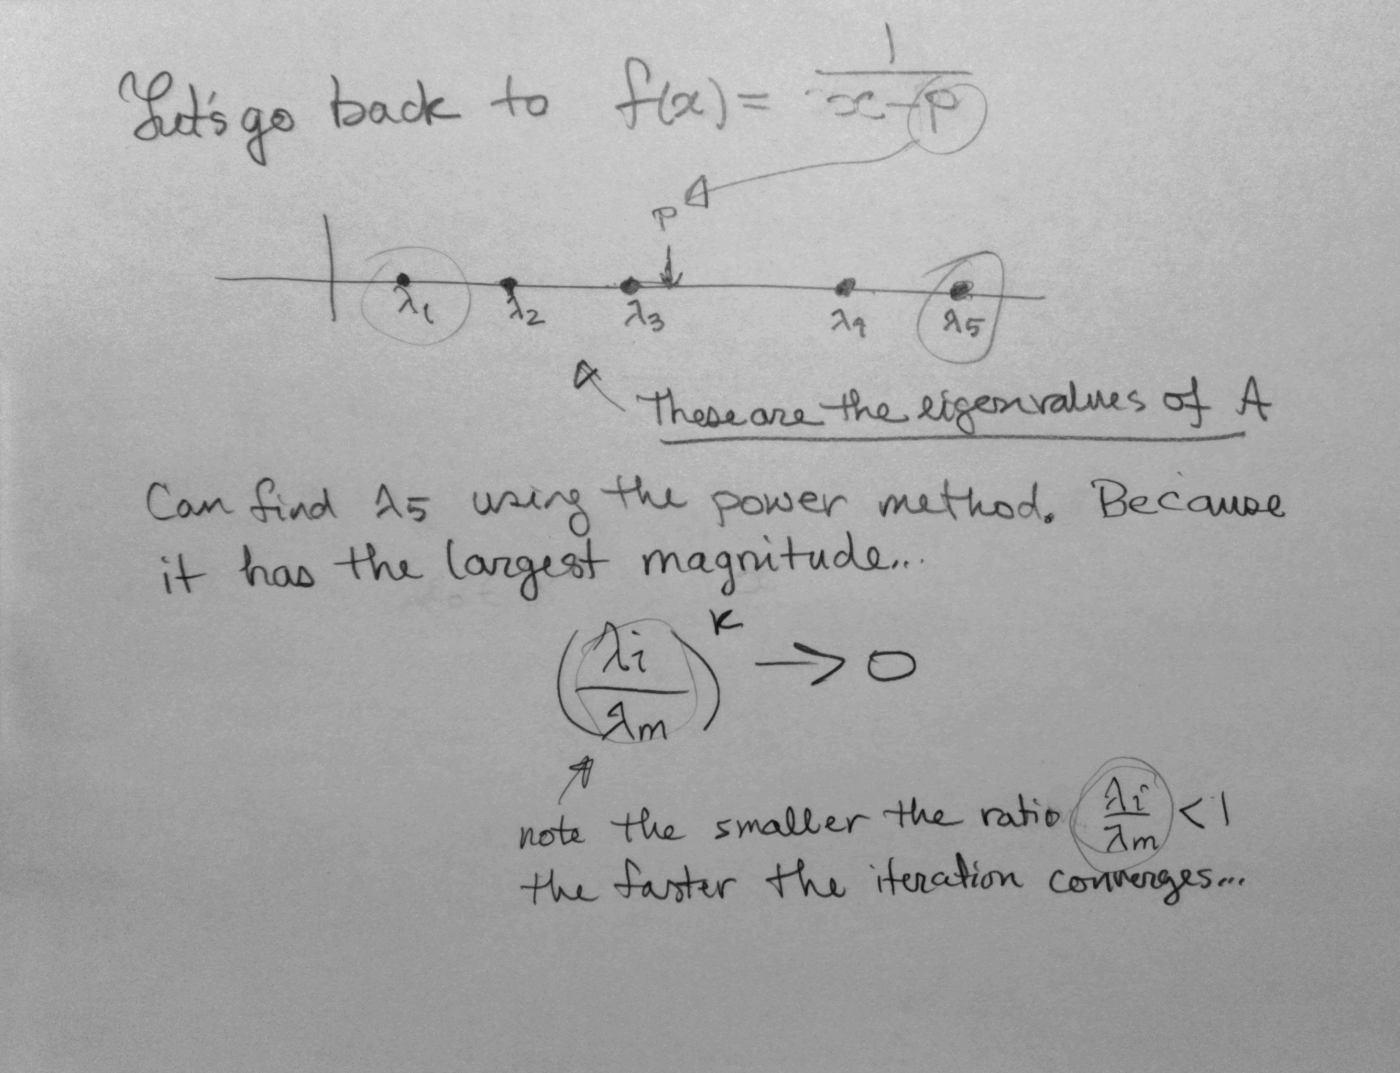 Let's go back to f(x) = 1/(x-p)
p
λ1 λ2 λ3 λ4 λ5
These are the eigenvalues of A
Can find λ5 using the power method. Because
it has the largest magnitude...
(λi/λm)^k → 0
note the smaller the ratio λi/λm < 1
the faster the iteration converges...